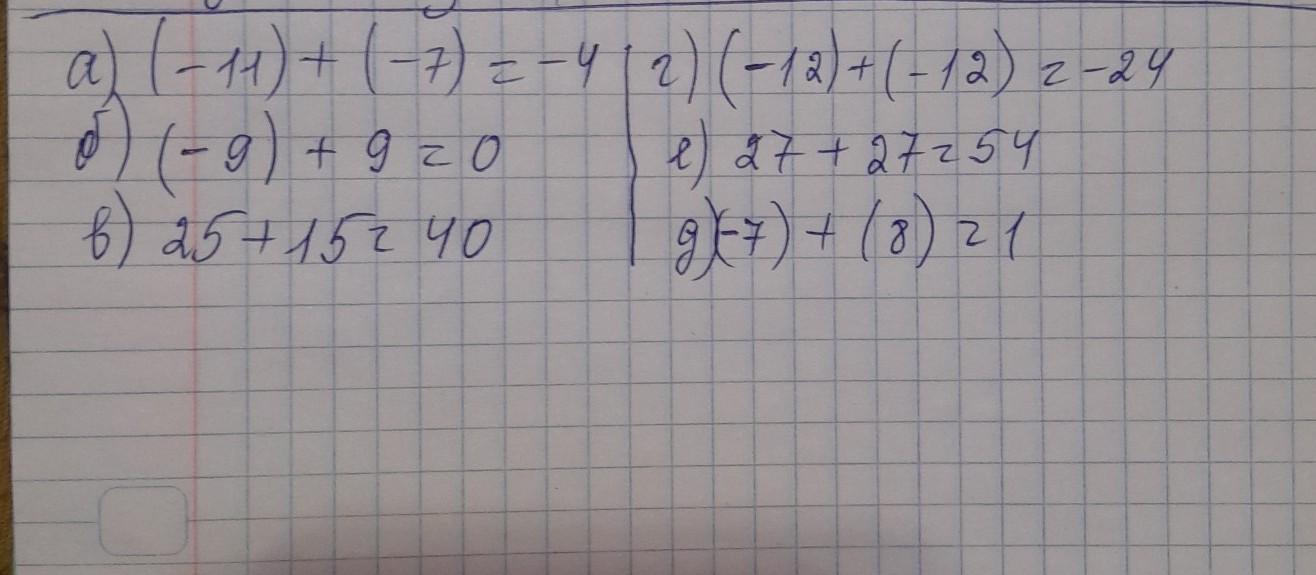 а) (-11) + (-7) = -4
б) (-9) + 9 = 0
в) 25 + 15 = 40
г) (-12) + (-12) = -24
е) 27 + 27 = 54
д) (-7) + (8) = 1